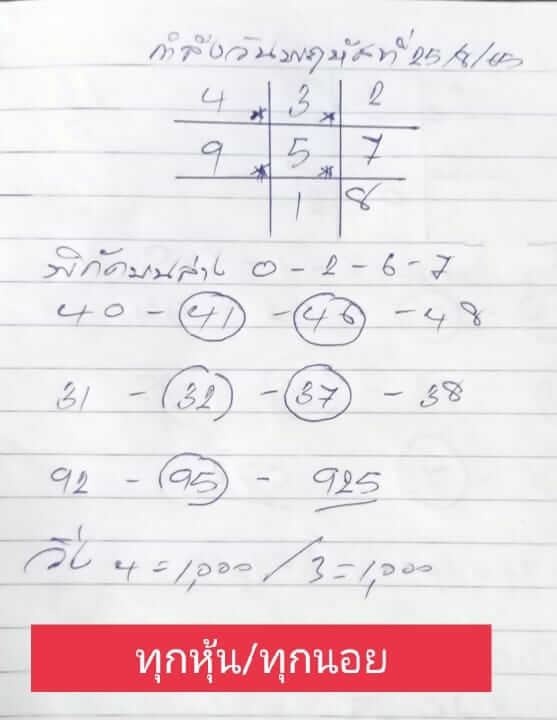 กำลังวันพฤหัสที่ 25/8/65
4 3 2
9 5 7
1 8
พิกัดบนล่าง 0 - 2 - 6 - 7
40 - 41 - 46 - 48
31 - 32 - 37 - 38
92 - 95 - 925
วิ่ง 4 = 1,000 / 3 = 1,000
ทุกหุ้น/ทุกนอย